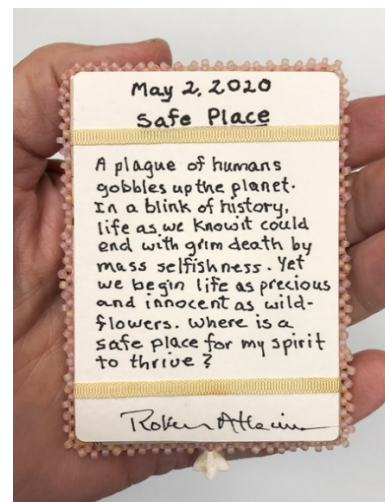 May 2, 2020
Safe Place
A plague of humans
gobbles up the planet.
In a blink of history,
life as we know it could
end with grim death by
mass selfishness. Yet
we begin life as precious
and innocent as wild-
flowers. Where is a
safe place for my spirit
to thrive?